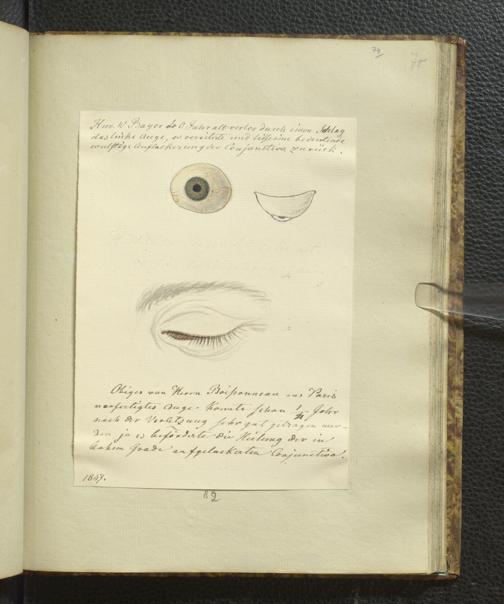 79
78
Hrn. W Bayer 8 Jahr alt verlor durch einen Schlag
das linke Auge, es vereiterte und ließ eine bedeutende
wulstige Auflockerung der Conjunctiva zurück.
Obiges von Herrn Boißonneau aus Paris
verfertigtes Auge konnte schon 1/4 Jahr
nach der Verletzung sehr gut getragen wer-
den ja es beförderte die Heilung der in
hohem Grade aufgelockerten Conjunctiva.
1847.
82